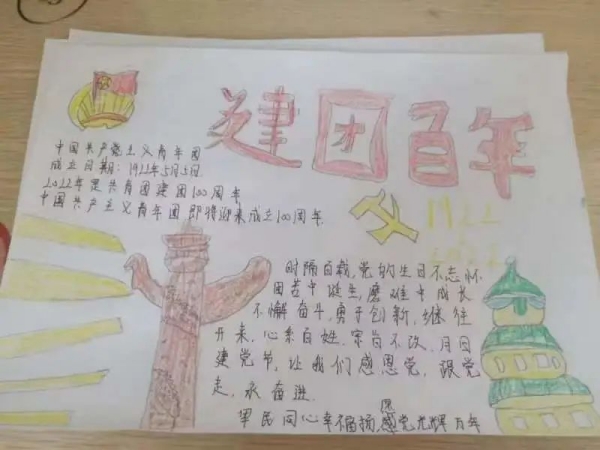 建团百年
中国共产党主义青年团
成立日期：1922年5月5日
2022年是共青团建团100周年
中国共产主义青年团，即将迎来成立100周年
1922
2022
时隔百载，党的生日不忘怀
困苦中诞生，磨难中成长
不懈奋斗，勇于创新，继往
开来，心系百姓，宗旨不改，月日
建党节，让我们感恩党，跟党
走，永奋进.
军民同心幸福扬，愿感党光辉万年